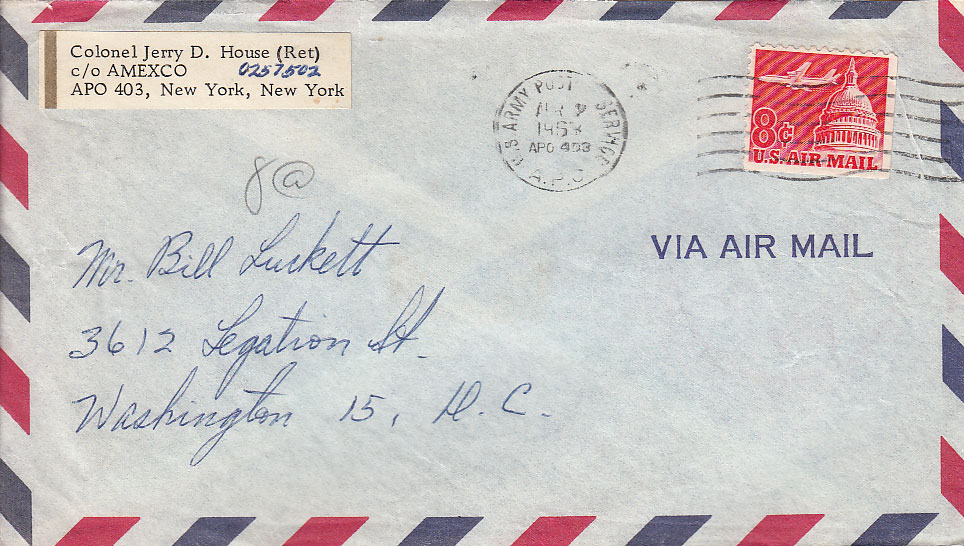 Colonel Jerry D. House (Ret)
c/o AMEXCO 0257502
APO 403, New York, New York
U.S. ARMY POST SERVICE
APO 403
A.P.O
8¢
U.S. AIR MAIL
8@
VIA AIR MAIL
Mr. Bill Luckett
3612 Legation St.
Washington 15, D.C.